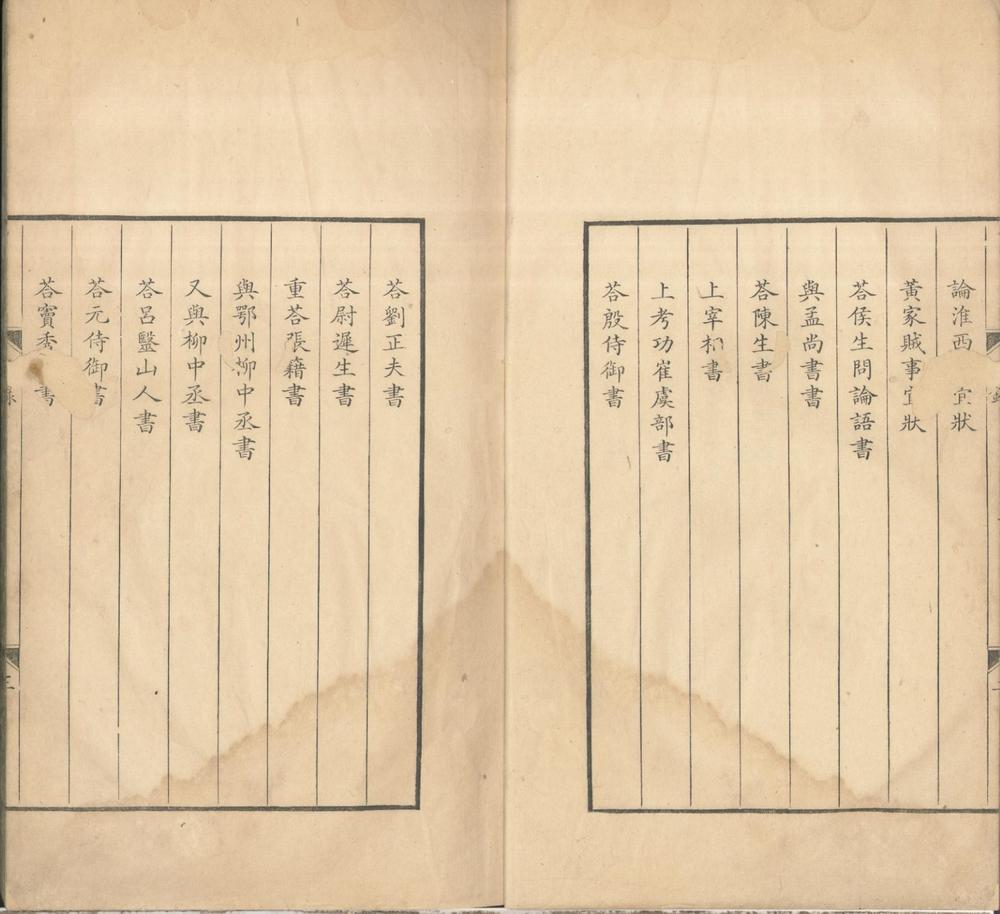 論淮西 宜狀
黃家賊事宜狀
荅侯生問論語書
與孟尚書書
荅陳生書
上宰相書
上考功崔虞部書
荅殷侍御書
荅劉正夫書
荅尉遲生書
重荅張籍書
與鄂州柳中丞書
又與柳中丞書
荅呂毉山人書
荅元侍御書
荅竇秀 書